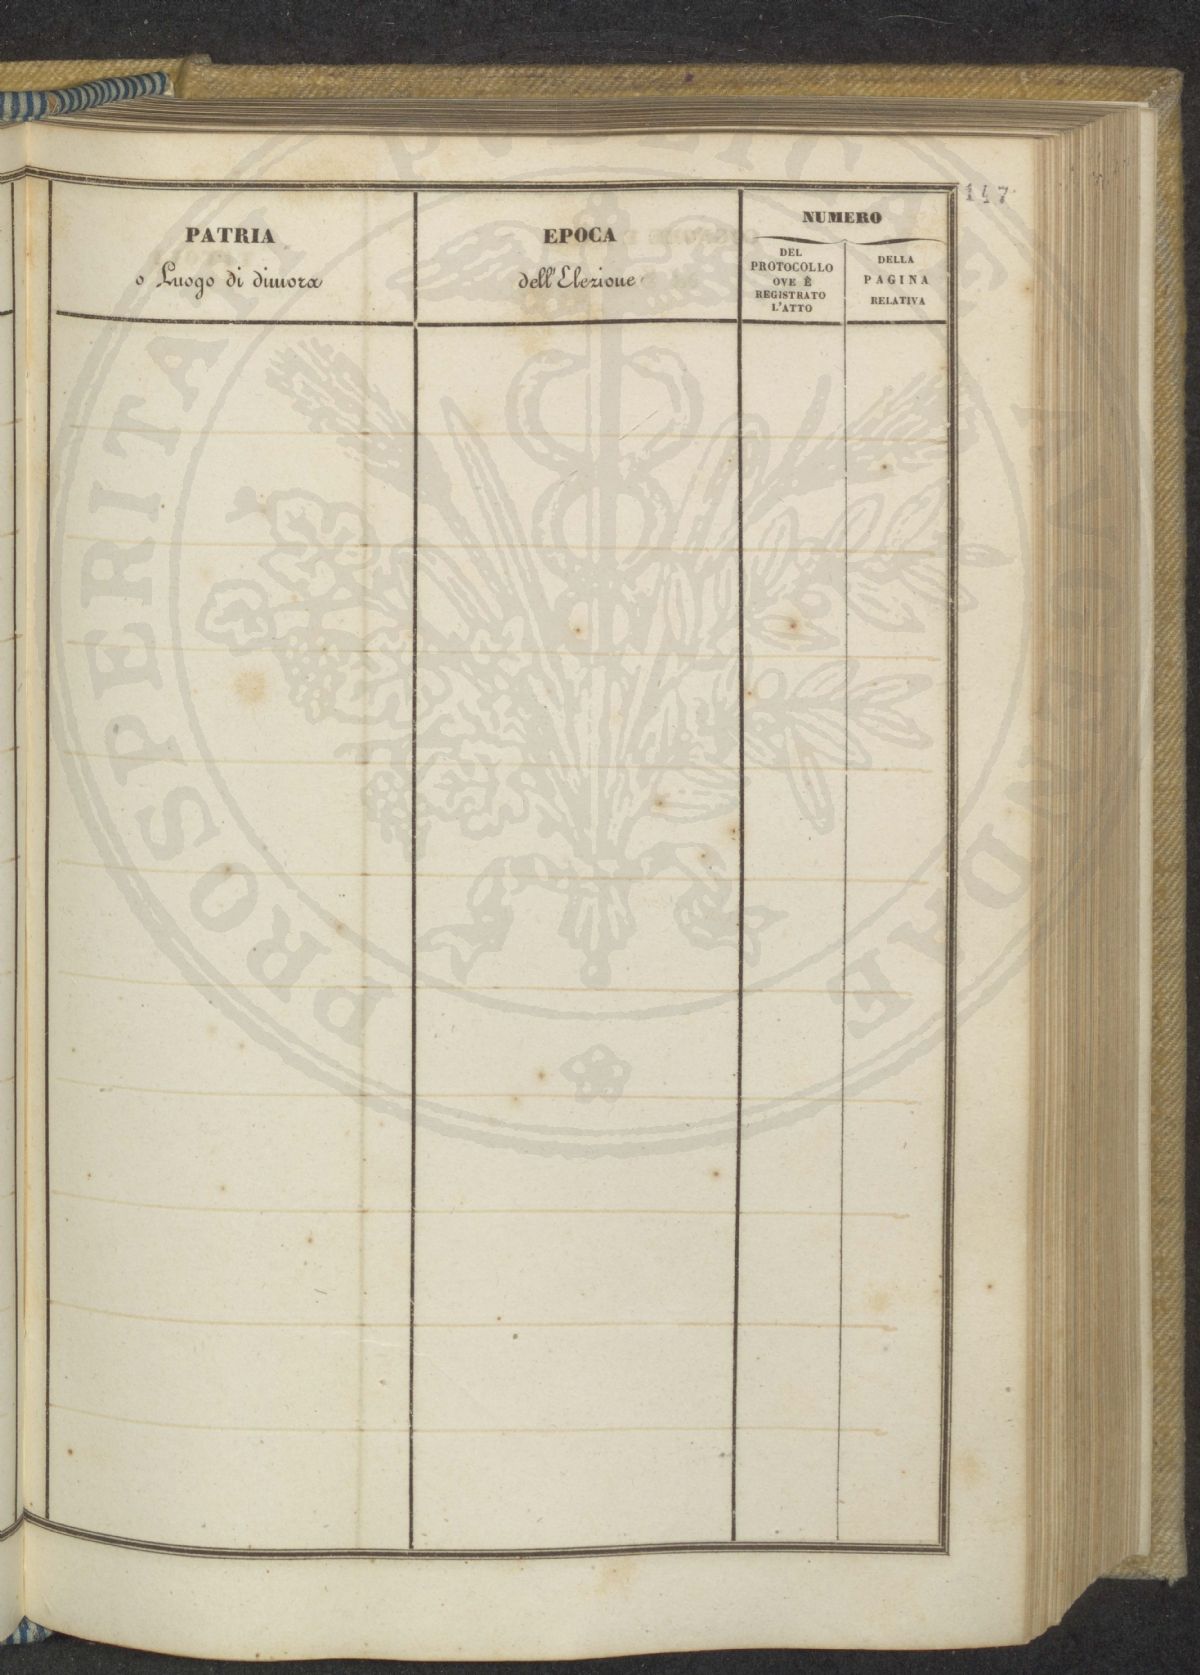 147
PATRIA
o Luogo di dimora
EPOCA
dell'Elezione
NUMERO
DEL
PROTOCOLLO
OVE È
REGISTRATO
L'ATTO
DELLA
PAGINA
RELATIVA
PROSPERITATI PUBLICAE AUGENDAE